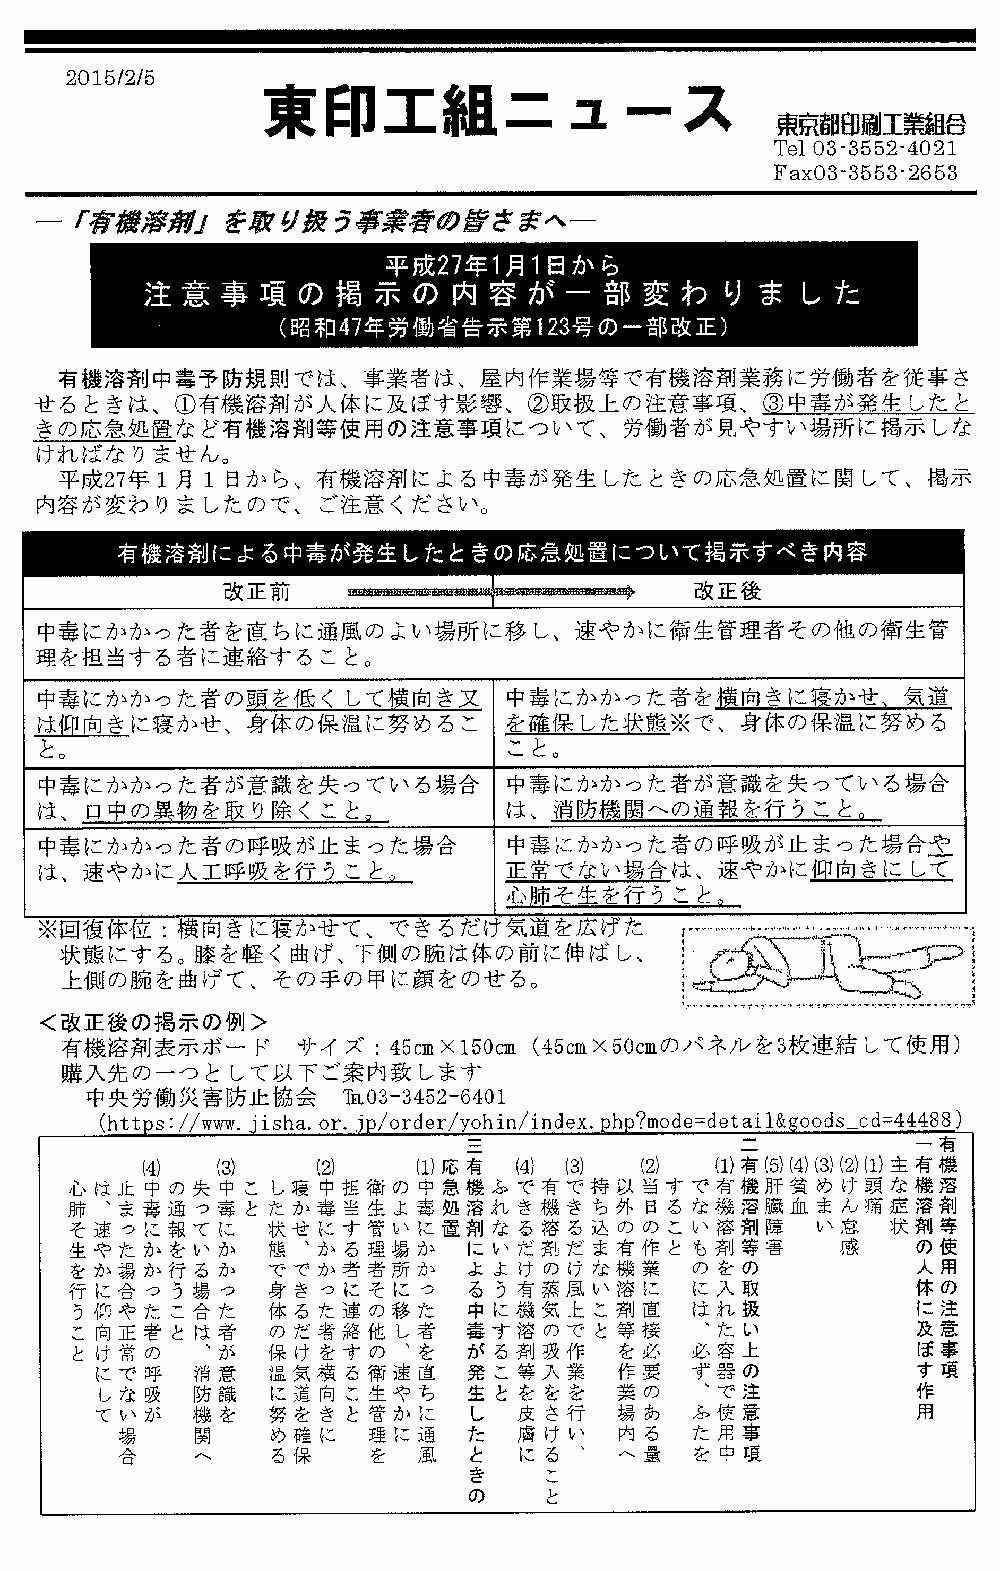 2015/2/5
東印工組ニュース
東京都印刷工業組合
Tel 03-3552-4021
Fax03-3553-2653
―「有機溶剤」を取り扱う事業者の皆さまへ―
平成27年1月1日から
注意事項の掲示の内容が一部変わりました
（昭和47年労働省告示第123号の一部改正）
有機溶剤中毒予防規則では、事業者は、屋内作業場等で有機溶剤業務に労働者を従事さ
せるときは、①有機溶剤が人体に及ぼす影響、②取扱上の注意事項、③中毒が発生したと
きの応急処置など有機溶剤等使用の注意事項について、労働者が見やすい場所に掲示しな
ければなりません。
平成27年１月１日から、有機溶剤による中毒が発生したときの応急処置に関して、掲示
内容が変わりましたので、ご注意ください。
有機溶剤による中毒が発生したときの応急処置について掲示すべき内容
改正前
改正後
中毒にかかった者を直ちに通風のよい場所に移し、速やかに衛生管理者その他の衛生管
理を担当する者に連絡すること。
中毒にかかった者の頭を低くして横向き又
は仰向きに寝かせ、身体の保温に努めるこ
と。
中毒にかかった者を横向きに寝かせ、気道
を確保した状態※で、身体の保温に努める
こと。
中毒にかかった者が意識を失っている場合
は、口中の異物を取り除くこと。
中毒にかかった者が意識を失っている場合
は、消防機関への通報を行うこと。
中毒にかかった者の呼吸が止まった場合
は、速やかに人工呼吸を行うこと。
中毒にかかった者の呼吸が止まった場合や
正常でない場合は、速やかに仰向きにして
心肺そ生を行うこと。
※回復体位：横向きに寝かせて、できるだけ気道を広げた
状態にする。膝を軽く曲げ、下側の腕は体の前に伸ばし、
上側の腕を曲げて、その手の甲に顔をのせる。
＜改正後の掲示の例＞
有機溶剤表示ボード　サイズ：45cm×150cm（45cm×50cmのパネルを3枚連結して使用）
購入先の一つとして以下ご案内致します
中央労働災害防止協会　℡03-3452-6401
(https://www.jisha.or.jp/order/yohin/index.php?mode=detail&goods_cd=44488)
有機溶剤等使用の注意事項
一有機溶剤の人体に及ぼす作用
主な症状
(1)頭痛
(2)けん怠感
(3)めまい
(4)貧血
(5)肝臓障害
二有機溶剤等の取扱い上の注意事項
(1)有機溶剤を入れた容器で使用中
でないものには、必ず、ふたを
すること
(2)当日の作業に直接必要のある量
以外の有機溶剤等を作業場内へ
持ち込まないこと
(3)できるだけ風上で作業を行い、
有機溶剤の蒸気の吸入をさけること
(4)できるだけ有機溶剤等を皮膚に
ふれないようにすること
三有機溶剤による中毒が発生したときの
応急処置
(1)中毒にかかった者を直ちに通風
のよい場所に移し、速やかに
衛生管理者その他の衛生管理を
担当する者に連絡すること
(2)中毒にかかった者を横向きに
寝かせ、できるだけ気道を確保
した状態で身体の保温に努める
こと
(3)中毒にかかった者が意識を
失っている場合は、消防機関へ
の通報を行うこと
(4)中毒にかかった者の呼吸が
止まった場合や正常でない場合
は、速やかに仰向けにして
心肺そ生を行うこと